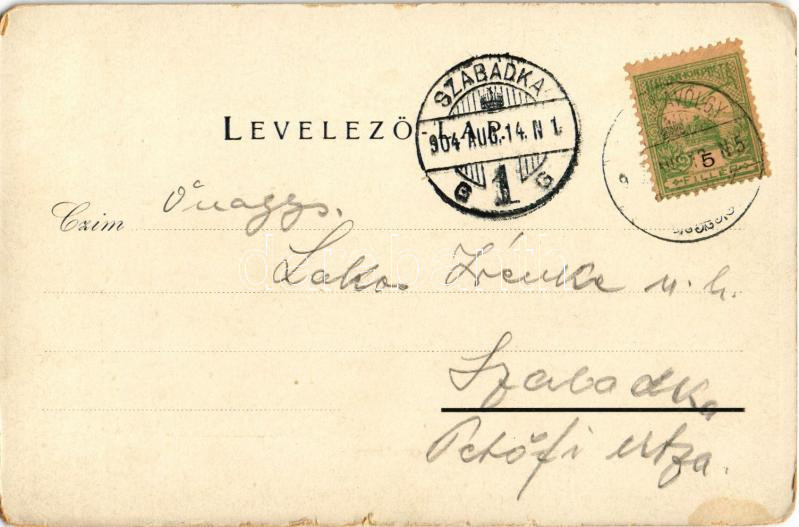 LEVELEZŐ-LAP
SZABADKA
904 AUG. 14. N 1.
G 1 G
5
FILLÉR
Czim Őnaggs.
Laka Irénke u. h.
Szabadka
Petőfi utza.